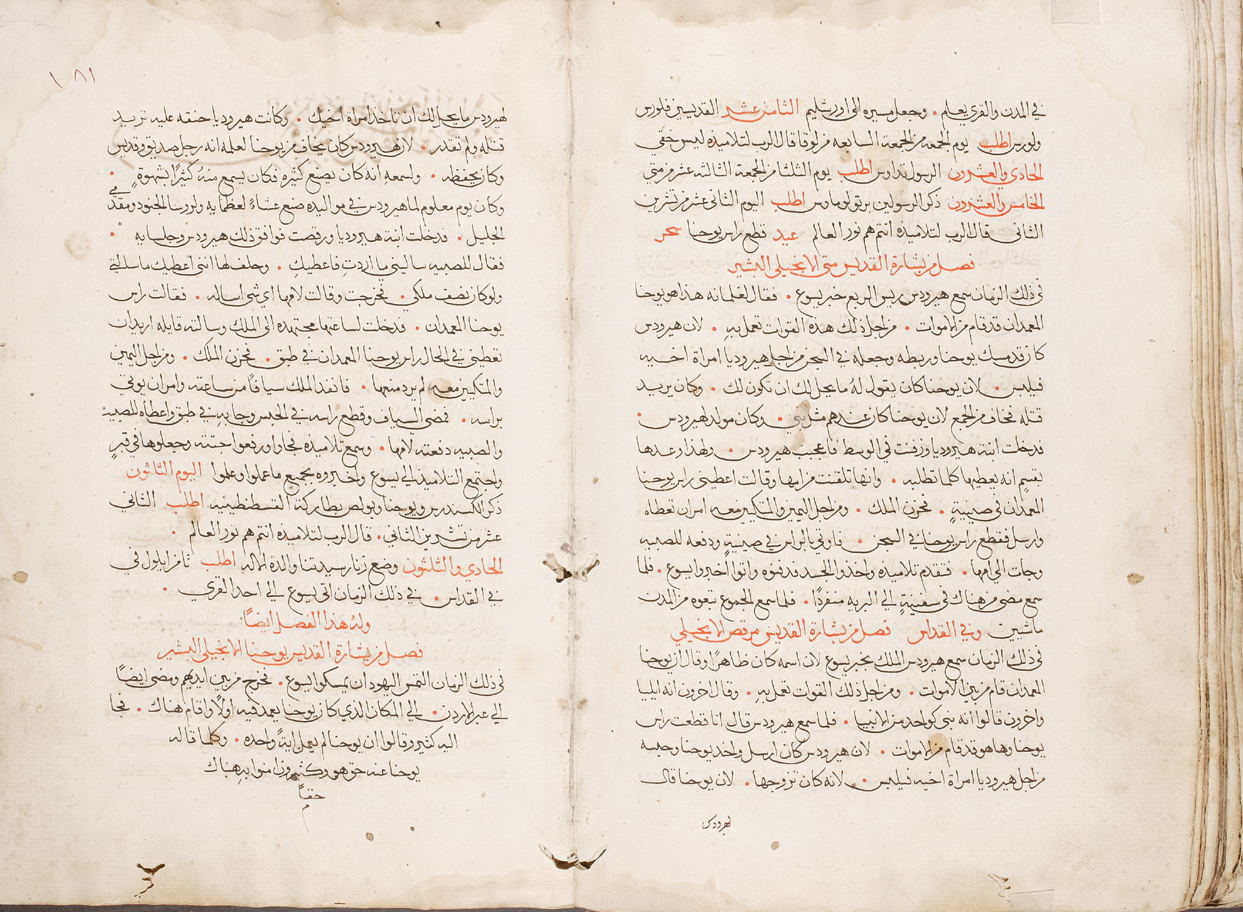 في المدن والقرى يعلم • وجعل مسيره الى اورشليم الثامن عشر القديسين فلورس
ولورس اطلب يوم الجمعه من الجمعة السابعه من لوقا قال الرب لتلاميذه ليس خفي
الحادي والعشرون الرسول تداوس اطلب يوم الثلثا من الجمعة الثالثه عشر من متى
الخامس والعشرون ذكر الرسولين برتولوماوس اطلب اليوم الثاني عشر من تشرين
الثاني قال الرب لتلاميذه انتم هم نور العالم عيد قطع راس يوحنا سحر
فصل من بشارة القديس متى الانجيلي البشير
في ذلك الزمان سمع هيرودس ريس الربع خبر يسوع • فقال لغلمانه هذا هو يوحنا
المعمدان قد قام من الاموات • من اجل ذلك هذه القوات تعمل به • لان هيرودس
كان قد مسك يوحنا وربطه وجعله في السجن من اجل هيروديا امراة اخيه
فيلبس • لان يوحنا كان يقول له ما يحل لك ان تكون لك • وكان يريد
قتله فخاف من الجمع لان يوحنا كان عندهم مثل نبي • وكان مولد لهيرودس •
فدخلت ابنة هيروديا وزفنت في الوسط فاعجبت هيرودس • ولهذا وعدها
بقسم انه يعطيها كلما تطلبه • وانها تلقنت من امها وقالت اعطني راس يوحنا
المعمدان في صينيةٍ • فحزن الملك • ومن اجل اليمين والمتكيين معه امر ان تعطاه
وارسل فقطع راس يوحنا في السجن • فاوتي بالراس في صينيةٍ ودفعه للصبيه
وجات الى امها • فتقدم تلاميذه واخذوا الجسد فدفنوه واتوا اخبروا يسوع • فلما
سمع مضى من هناك في سفينةٍ الى البريه منفردًا • فلما سمع الجموع تبعوه من المدن
ماشيين وفي القداس فصل من بشارة القديس مرقص الانجيلي
في ذلك الزمان سمع هيرودس الملك بخبر يسوع لان اسمه كان ظاهرًا وقال ان يوحنا
المعمدان قام من بين الاموات • ومن اجل ذلك القوات تعمل به • وقال اخرون انه ايليا
واخرون قالوا انه نبي كواحد من الانبيا • فلما سمع هيرودس قال انا قطعت راس
يوحنا وها هو قد قام من الاموات • لان هيرودس كان ارسل واخذ يوحنا وحبسه
من اجل هيروديا امراة اخيه فيلبس • لانه كان تزوجها • لان يوحنا قال
لهيرودس
١٨١
لهيرودس ما يحل لك ان تاخذ امراة اخيك • وكانت هيروديا حنقه عليه تريد
قتله ولم تقدر • لان هيرودس كان يخاف من يوحنا لعلمه انه رجل صديق وقديس
وكان يحفظه • ولسمعه انه كان يصنع كثيره فكان يسمع منه كثيرًا بشهوة •
وكان يوم معلوم لما هيرودس في مواليده صنع عشاءً لعظمايه ولروسا الجنود ومقدمي
الجليل • فدخلت ابنة هيروديا ورقصت فوافق ذلك هيرودس وجلسايه •
فقال للصبيه ساليني ما اردتِ فاعطيك • وحلف لها انني اعطيك ما سالتي
ولو كان نصف ملكي • فخرجت وقالت لامها اي شي اساله • فقالت راس
يوحنا المعمدان • فدخلت لساعتها مجتهده الى الملك وسالته قايله اريد ان
تعطني في الحال راس يوحنا المعمدان في طبق • فحزن الملك • ومن اجل اليمين
والمتكيين معه لم يرد منعها • فانفذ الملك سيافًا من ساعته وامر ان يوتي
براسه • فمضى السياف وقطع راسه في الحبس وجا به في طبق واعطاه للصبيه
والصبيه دفعته لامها • وسمع تلاميذه فجاوا ورفعوا جثته وجعلوها في قبرٍ
واجتمع التلاميذ الى يسوع واخبروه بجميع ما عملوا وعلموا اليوم الثلثون
ذكر الكسندرس ويوحنا وبولص بطاركة القسطنطينيه اطلب الثاني
عشر من تشرين الثاني • قال الرب لتلاميذه انتم هم نور العالم •
الحادي والثلثون وضع زنار سيدتنا والدة الالاه اطلب ثامن ايلول في
في القداس • في ذلك الزمان اتى يسوع الى احد القري •
وله هذا الفصل ايضًا
فصل من بشارة القديس يوحنا الانجيلي البشير
في ذلك الزمان التمس اليهود ان يمسكوا يسوع • فخرج من بين ايديهم ومضى ايضًا
الى عبر الاردن • الى المكان الذي كان يوحنا يعمد فيه اولاً واقام هناك • فجا
اليه كثير وقالوا ان يوحنا لم يعمل ايةً وحده • وكلما قاله
يوحنا عنه حق هو وكثيرون امنوا به هناك
حقاً